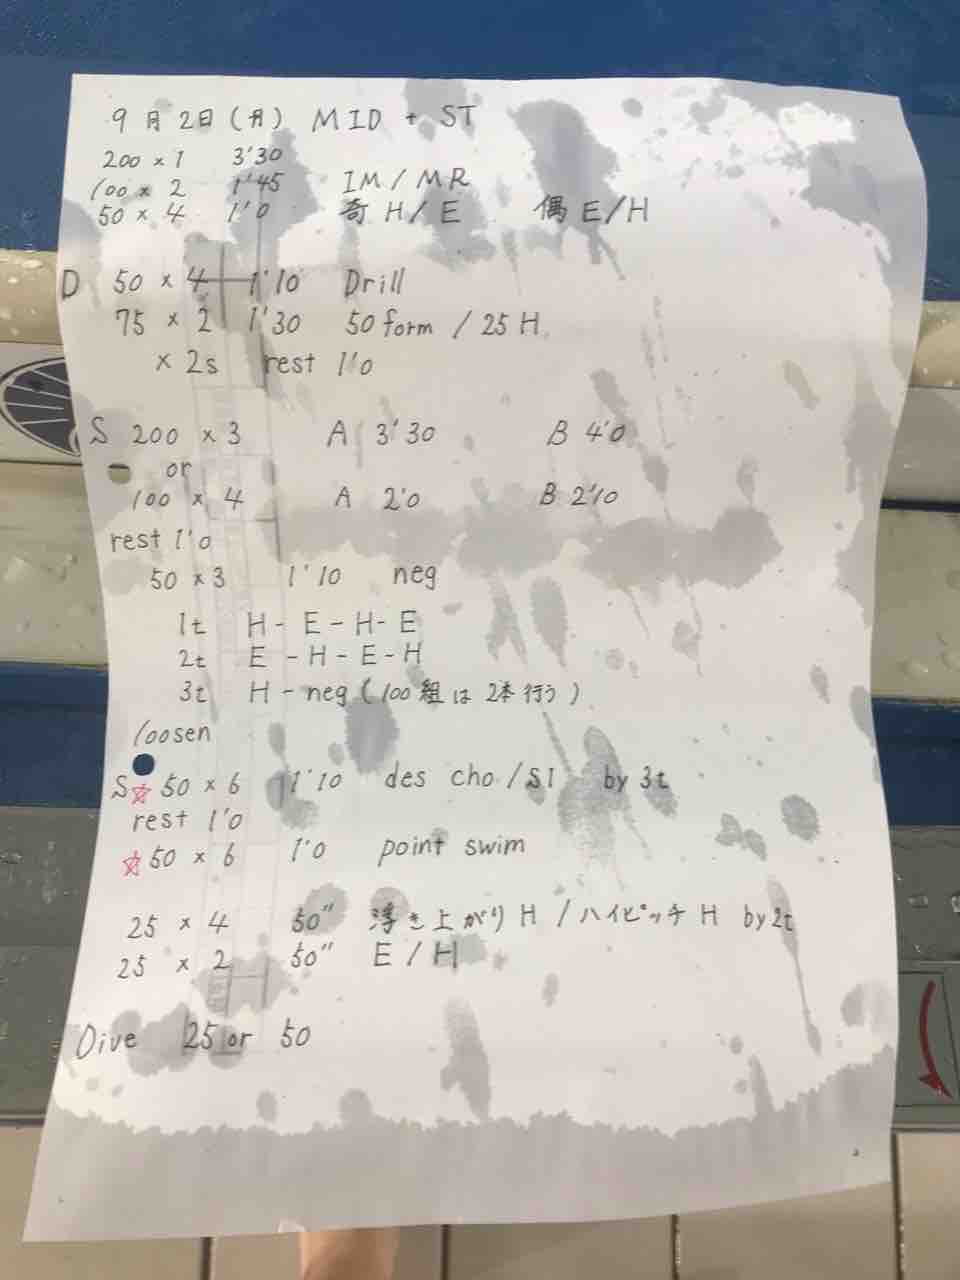 9月2日(月) MID + ST
200 × 1 3'30
100 × 2 1'45 IM / MR
50 × 4 1'0 奇 H / E 偶 E/H
D 50 × 4 1'10 Drill
75 × 2 1'30 50 form / 25 H
× 2s rest 1'0
S 200 × 3 A 3'30 B 4'0
or
100 × 4 A 2'0 B 2'10
rest 1'0
50 × 3 1'10 neg
1t H - E - H - E
2t E - H - E - H
3t H - neg (100組は2本行う)
loosen
S☆ 50 × 6 1'10 des cho / S1 by 3t
rest 1'0
☆ 50 × 6 1'0 point swim
25 × 4 50" 浮き上がり H / ハイピッチ H by 2t
25 × 2 50" E / H
Dive 25 or 50